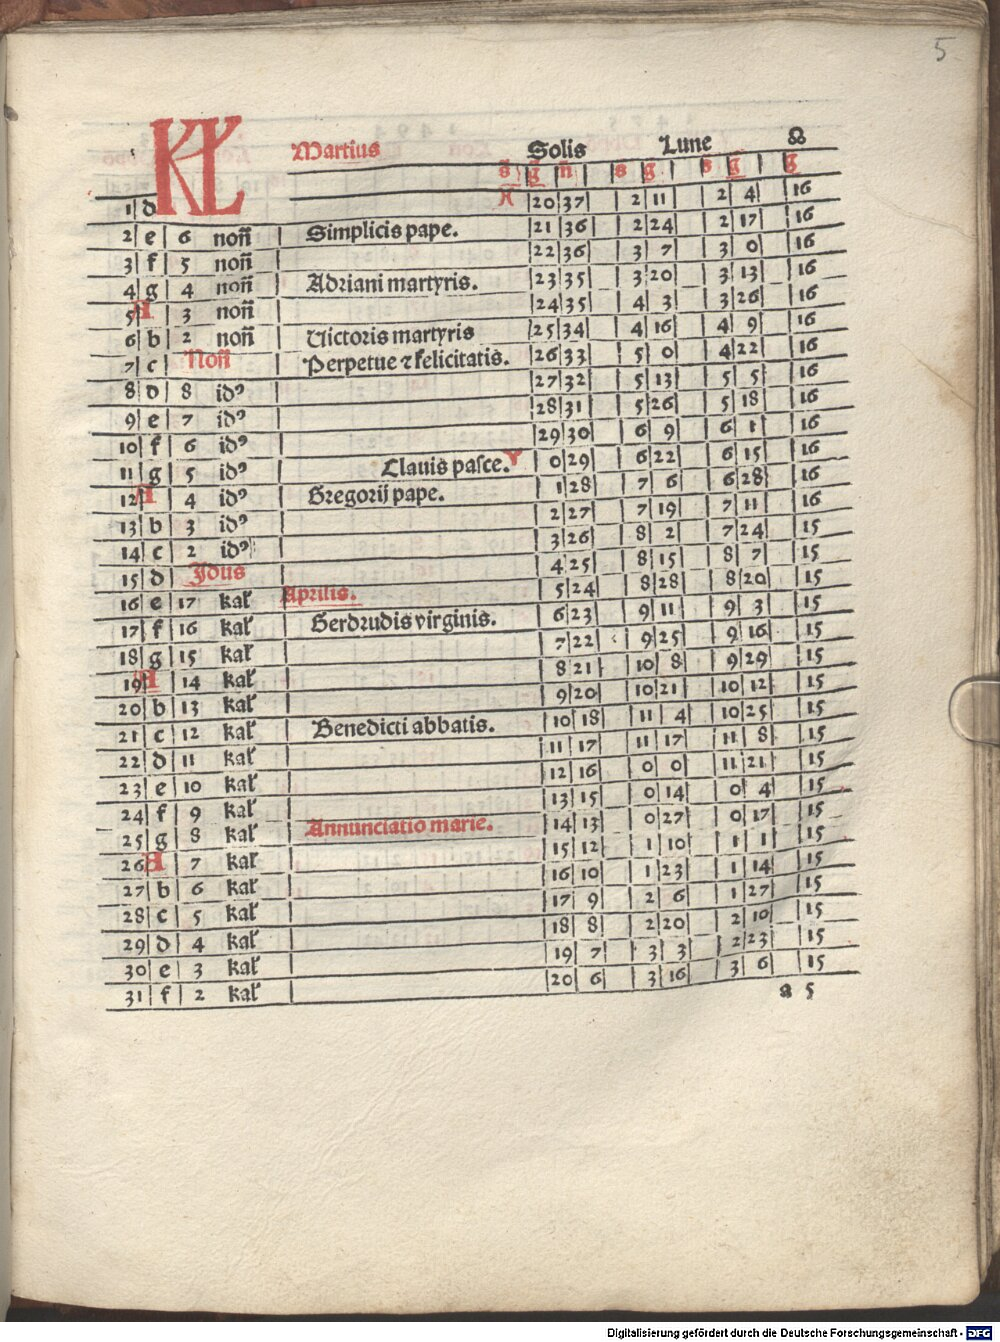 5
KŁ Martius Solis Lune ☊
s g m s g s g g
1 d ♓ 20 37 2 11 2 4 16
2 e 6 non̄ Simplicis pape. 21 36 2 24 2 17 16
3 f 5 non̄ 22 36 3 7 3 0 16
4 g 4 non̄ Adriani martyris. 23 35 3 20 3 13 16
5 A 3 non̄ 24 35 4 3 3 26 16
6 b 2 non̄ Uictoris martyris 25 34 4 16 4 9 16
7 c Non̄ Perpetue ⁊ felicitatis. 26 33 5 0 4 22 16
8 d 8 idꝰ 27 32 5 13 5 5 16
9 e 7 idꝰ 28 31 5 26 5 18 16
10 f 6 idꝰ 29 30 6 9 6 1 16
11 g 5 idꝰ Clauis pasce. ♈ 0 29 6 22 6 15 16
12 A 4 idꝰ Gregorij pape. 1 28 7 6 6 28 16
13 b 3 idꝰ 2 27 7 19 7 11 16
14 c 2 idꝰ 3 26 8 2 7 24 15
15 d Idus 4 25 8 15 8 7 15
16 e 17 kal̄ Aprilis. 5 24 8 28 8 20 15
17 f 16 kal̄ Gerdrudis virginis. 6 23 9 11 9 3 15
18 g 15 kal̄ 7 22 9 25 9 16 15
19 A 14 kal̄ 8 21 10 8 9 29 15
20 b 13 kal̄ 9 20 10 21 10 12 15
21 c 12 kal̄ Benedicti abbatis. 10 18 11 4 10 25 15
22 d 11 kal̄ 11 17 11 17 11 8 15
23 e 10 kal̄ 12 16 0 0 11 21 15
24 f 9 kal̄ 13 15 0 14 0 4 15
25 g 8 kal̄ Annunciatio marie. 14 13 0 27 0 17 15
26 A 7 kal̄ 15 12 1 10 1 1 15
27 b 6 kal̄ 16 10 1 23 1 14 15
28 c 5 kal̄ 17 9 2 6 1 27 15
29 d 4 kal̄ 18 8 2 20 2 10 15
30 e 3 kal̄ 19 7 3 3 2 23 15
31 f 2 kal̄ 20 6 3 16 3 6 15
a 5
Digitalisierung gefördert durch die Deutsche Forschungsgemeinschaft - DFG